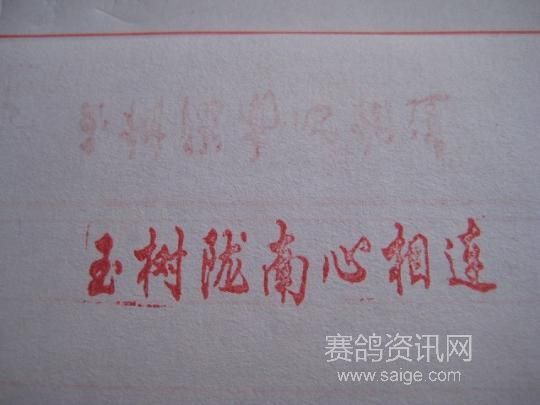 玉树陇南心相连
赛鸽资讯网
www.saige.com